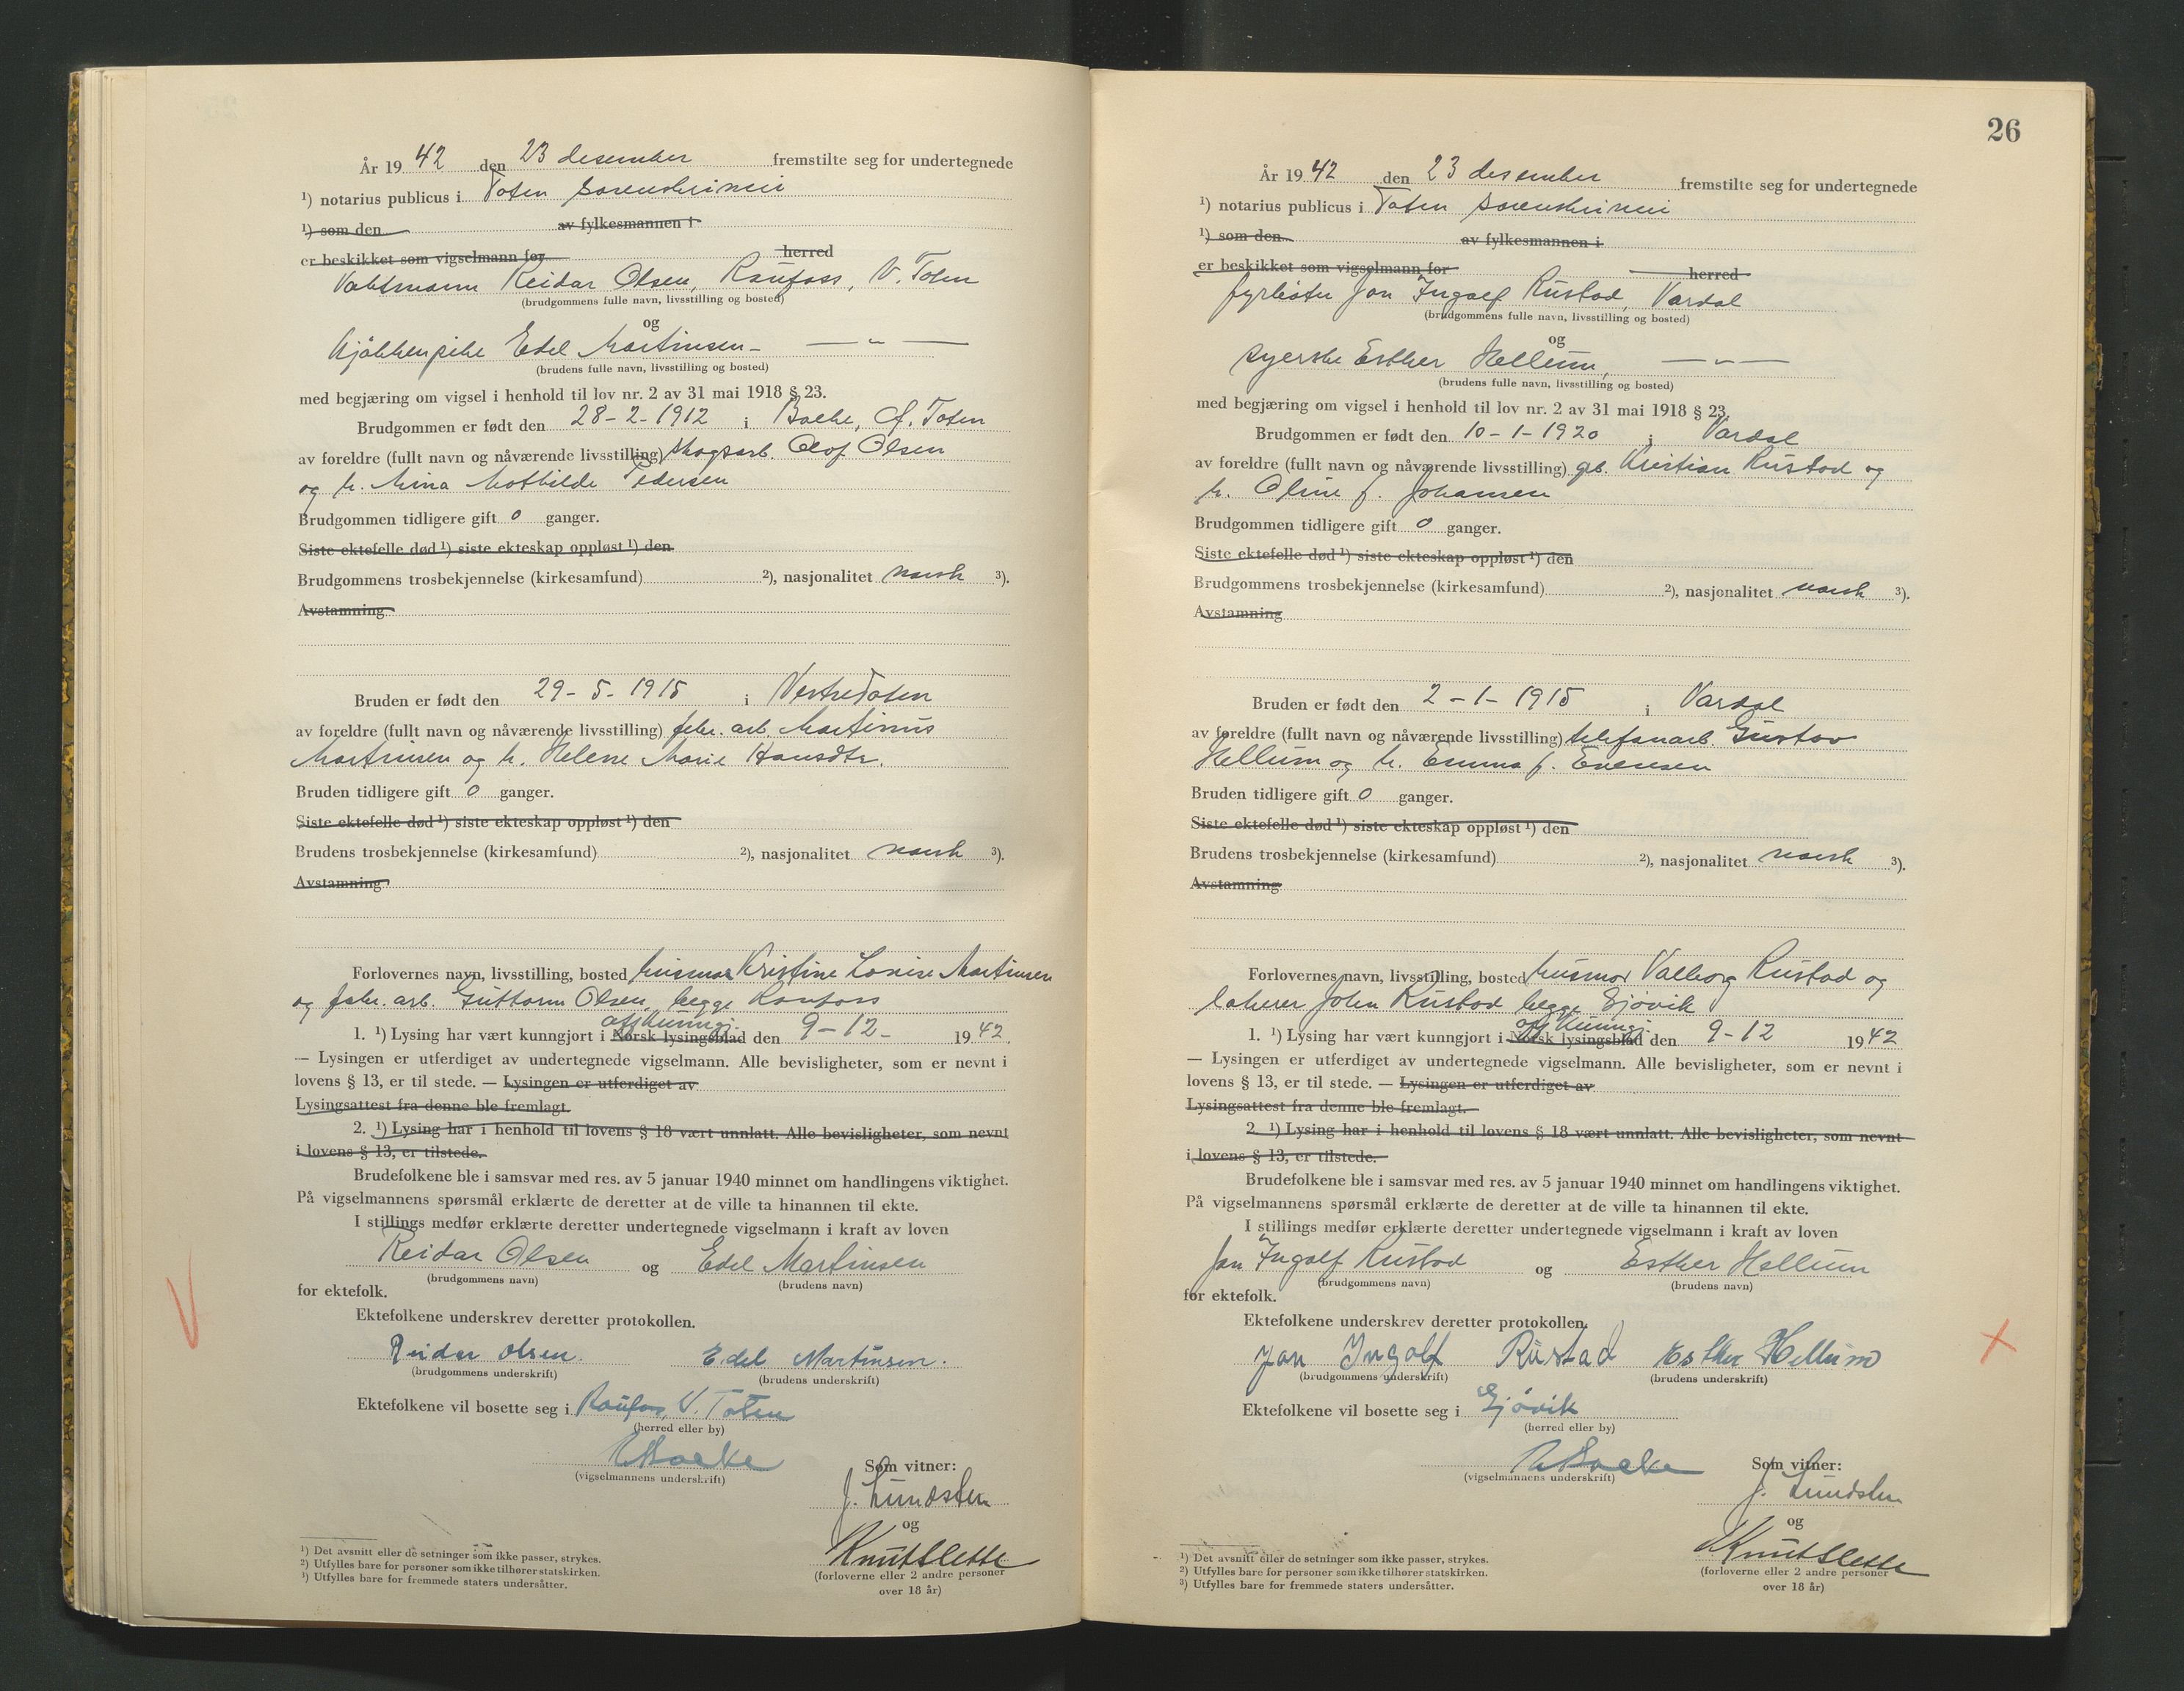 År 19 42 den 23 desember fremstilte seg for undertegnede
¹) notarius publicus i Toten sorenskriveri
¹) som den av fylkesmannen i
er beskikket som vigselmann for herred
Vaktmann Reidar Olsen, Raufoss, V. Toten
(brudgommens fulle navn, livsstilling og bosted)
og
Kjøkkenpike Edel Martinsen — — " —
(brudens fulle navn, livsstilling og bosted)
med begjæring om vigsel i henhold til lov nr. 2 av 31 mai 1918 § 23.
Brudgommen er født den 28-2-1912 i Balke, Ø. Toten
av foreldre (fullt navn og nåværende livsstilling) skogsarb. Olof Olsen
og h. Mina Mathilde Pedersen
Brudgommen tidligere gift 0 ganger.
Siste ektefelle død ¹) siste ekteskap oppløst ¹) den
Brudgommens trosbekjennelse (kirkesamfund) ²), nasjonalitet norsk ³).
Avstamning
Bruden er født den 29-5-1915 i Vestre Toten
av foreldre (fullt navn og nåværende livsstilling) fabr. arb. Martinus
Martinsen og h. Helene Marie Hansdtr.
Bruden tidligere gift 0 ganger.
Siste ektefelle død ¹) siste ekteskap oppløst ¹) den
Brudens trosbekjennelse (kirkesamfund) ²), nasjonalitet norsk ³).
Avstamning
Forlovernes navn, livsstilling, bosted husmor Kristine Lovise Martinsen
og fabr. arb. Guttorm Olsen, begge Raufoss
off. kunngj.
1. ¹) Lysing har vært kunngjort i Norsk lysingsblad den 9-12- 19 42.
— Lysingen er utferdiget av undertegnede vigselmann. Alle bevisligheter, som er nevnt i
lovens § 13, er til stede. — Lysingen er utferdiget av
Lysingsattest fra denne ble fremlagt.
2. ¹) Lysing har i henhold til lovens § 18 vært unnlatt. Alle bevisligheter, som nevnt
i lovens § 13, er tilstede.
Brudefolkene ble i samsvar med res. av 5 januar 1940 minnet om handlingens viktighet.
På vigselmannens spørsmål erklærte de deretter at de ville ta hinannen til ekte.
I stillings medfør erklærte deretter undertegnede vigselmann i kraft av loven
Reidar Olsen og Edel Martinsen
(brudgommens navn) (brudens navn)
for ektefolk.
Ektefolkene underskrev deretter protokollen.
Reidar Olsen. Edel Martinsen.
(brudgommens underskrift) (brudens underskrift)
Ektefolkene vil bosette seg i Raufoss, V. Toten
(herred eller by)
(vigselmannens underskrift)
Som vitner:
J. Lundsten
og
Knut Slette
(forloverne eller 2 andre personer
over 18 år)
¹) Det avsnitt eller de setninger som ikke passer, strykes.
²) Utfylles bare for personer som ikke tilhører statskirken.
³) Utfylles bare for fremmede staters undersåtter.
26
År 19 42 den 23 desember fremstilte seg for undertegnede
¹) notarius publicus i Toten sorenskriveri
¹) som den av fylkesmannen i
er beskikket som vigselmann for herred
fyrbøter Jan Ingolf Rustad, Vardal
(brudgommens fulle navn, livsstilling og bosted)
og
syerske Esther Hellum, — " —
(brudens fulle navn, livsstilling og bosted)
med begjæring om vigsel i henhold til lov nr. 2 av 31 mai 1918 § 23.
Brudgommen er født den 10-1-1920 i Vardal
av foreldre (fullt navn og nåværende livsstilling) gb. Kristian Rustad og
h. Oline f. Johansen
Brudgommen tidligere gift 0 ganger.
Siste ektefelle død ¹) siste ekteskap oppløst ¹) den
Brudgommens trosbekjennelse (kirkesamfund) ²), nasjonalitet norsk ³).
Avstamning
Bruden er født den 2-1-1915 i Vardal
av foreldre (fullt navn og nåværende livsstilling) telefonarb. Gustav
Hellum og h. Emma f. Evensen
Bruden tidligere gift 0 ganger.
Siste ektefelle død ¹) siste ekteskap oppløst ¹) den
Brudens trosbekjennelse (kirkesamfund) ²), nasjonalitet norsk ³).
Avstamning
Forlovernes navn, livsstilling, bosted husmor Valborg Rustad og
lakerer John Rustad begge Gjøvik
off. kunngj.
1. ¹) Lysing har vært kunngjort i Norsk lysingsblad den 9-12 19 42
— Lysingen er utferdiget av undertegnede vigselmann. Alle bevisligheter, som er nevnt i
lovens § 13, er til stede. — Lysingen er utferdiget av
Lysingsattest fra denne ble fremlagt.
2. ¹) Lysing har i henhold til lovens § 18 vært unnlatt. Alle bevisligheter, som nevnt
i lovens § 13, er tilstede.
Brudefolkene ble i samsvar med res. av 5 januar 1940 minnet om handlingens viktighet.
På vigselmannens spørsmål erklærte de deretter at de ville ta hinannen til ekte.
I stillings medfør erklærte deretter undertegnede vigselmann i kraft av loven
Jan Ingolf Rustad og Esther Hellum
(brudgommens navn) (brudens navn)
for ektefolk.
Ektefolkene underskrev deretter protokollen.
Jan Ingolf Rustad Esther Hellum
(brudgommens underskrift) (brudens underskrift)
Ektefolkene vil bosette seg i Gjøvik
(herred eller by)
(vigselmannens underskrift)
Som vitner:
J. Lundsten
og
Knut Slette
(forloverne eller 2 andre personer
over 18 år)
¹) Det avsnitt eller de setninger som ikke passer, strykes.
²) Utfylles bare for personer som ikke tilhører statskirken.
³) Utfylles bare for fremmede staters undersåtter.